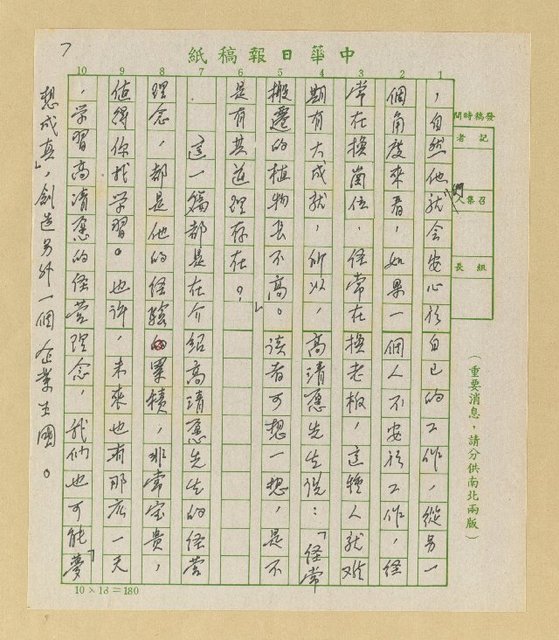 7
中華日報稿紙
10 9 8 7 6 5 4 3 2 1
發稿時間
記者
召集人
組長
(重要消息,請分供南北兩版)
,自然他們就會安心於自己的工作,從另一
個角度來看,如果一個人不安於工作,經
常在換崗位,經常在換老板,這種人就難
期有大成就,所以,高清愿先生說:「經常
搬遷的植物長不高。」讀者可想一想,是不
是有其道理存在?
這一篇都是在介紹高清愿先生的經營
理念,都是他的經驗的累積,非常宝貴,
值得你我学習。也許,未來也有那么一天
,学習高清愿的經营理念,我们也可能「夢
想成真」,創造另外一個企業王國。
10×18=180